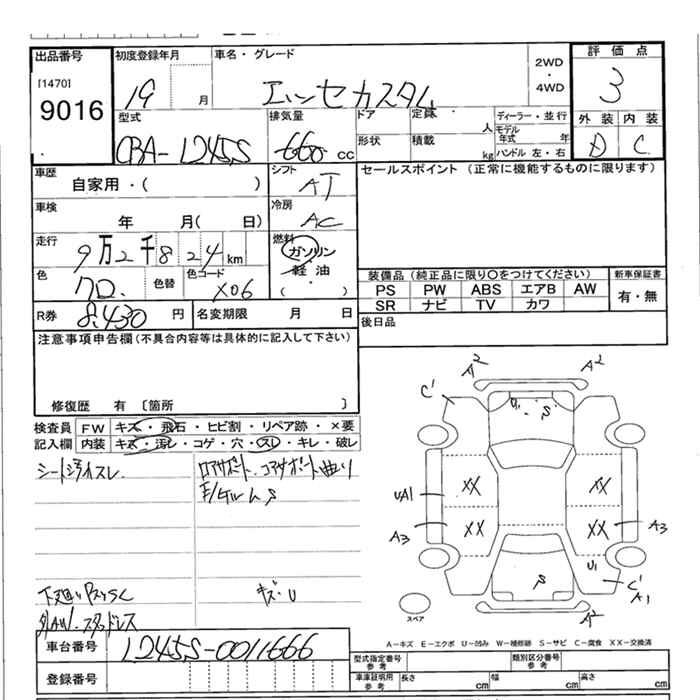 出品番号 初度登録年月 車名・グレード 2WD・4WD 評価点
[1470]
9016 19 月 エッセカスタム 3
型式 排気量 ドア 定員 人 ディーラー・並行 外装 内装
CBA-L245S 660 cc 形状 積載 kg モデル年式 年 ハンドル 左・右 D C
車歴 自家用・( ) シフト AT セールスポイント (正常に機能するものに限ります)
車検 年 月( 日) 冷房 AC
走行 9万2千824km 燃料 ガソリン・軽油・( )
色 クロ. 色替 色コード X06 装備品(純正品に限り○をつけてください) 新車保証書
PS PW ABS エアB AW 有・無
SR ナビ TV カワ
R券 8,430 円 名変期限 月 日 後日品
注意事項申告欄(不具合内容等は具体的に記入して下さい)
修復歴 有 〔箇所 〕
検査員 FW キズ・飛石・ヒビ割・リペア跡・×要
記入欄 内装 キズ・汚レ・コゲ・穴・スレ・キレ・破レ
シート汚れスレ. ロアサポート.コアサポート曲り
S
キズ・U
外AW.スタッドレス
A2 A2
C' U1 S
XX XX
UA1
A3 XX XX A3
U1
S C' A1
スペア A2
A-キズ E-エクボ U-凹み W-補修跡 S-サビ C-腐食 XX-交換済
車台番号 L245S-0011666
登録番号
型式指定番号 参考 類別区分番号 参考
車庫証明用 参考 長さ cm 幅 cm 高さ cm